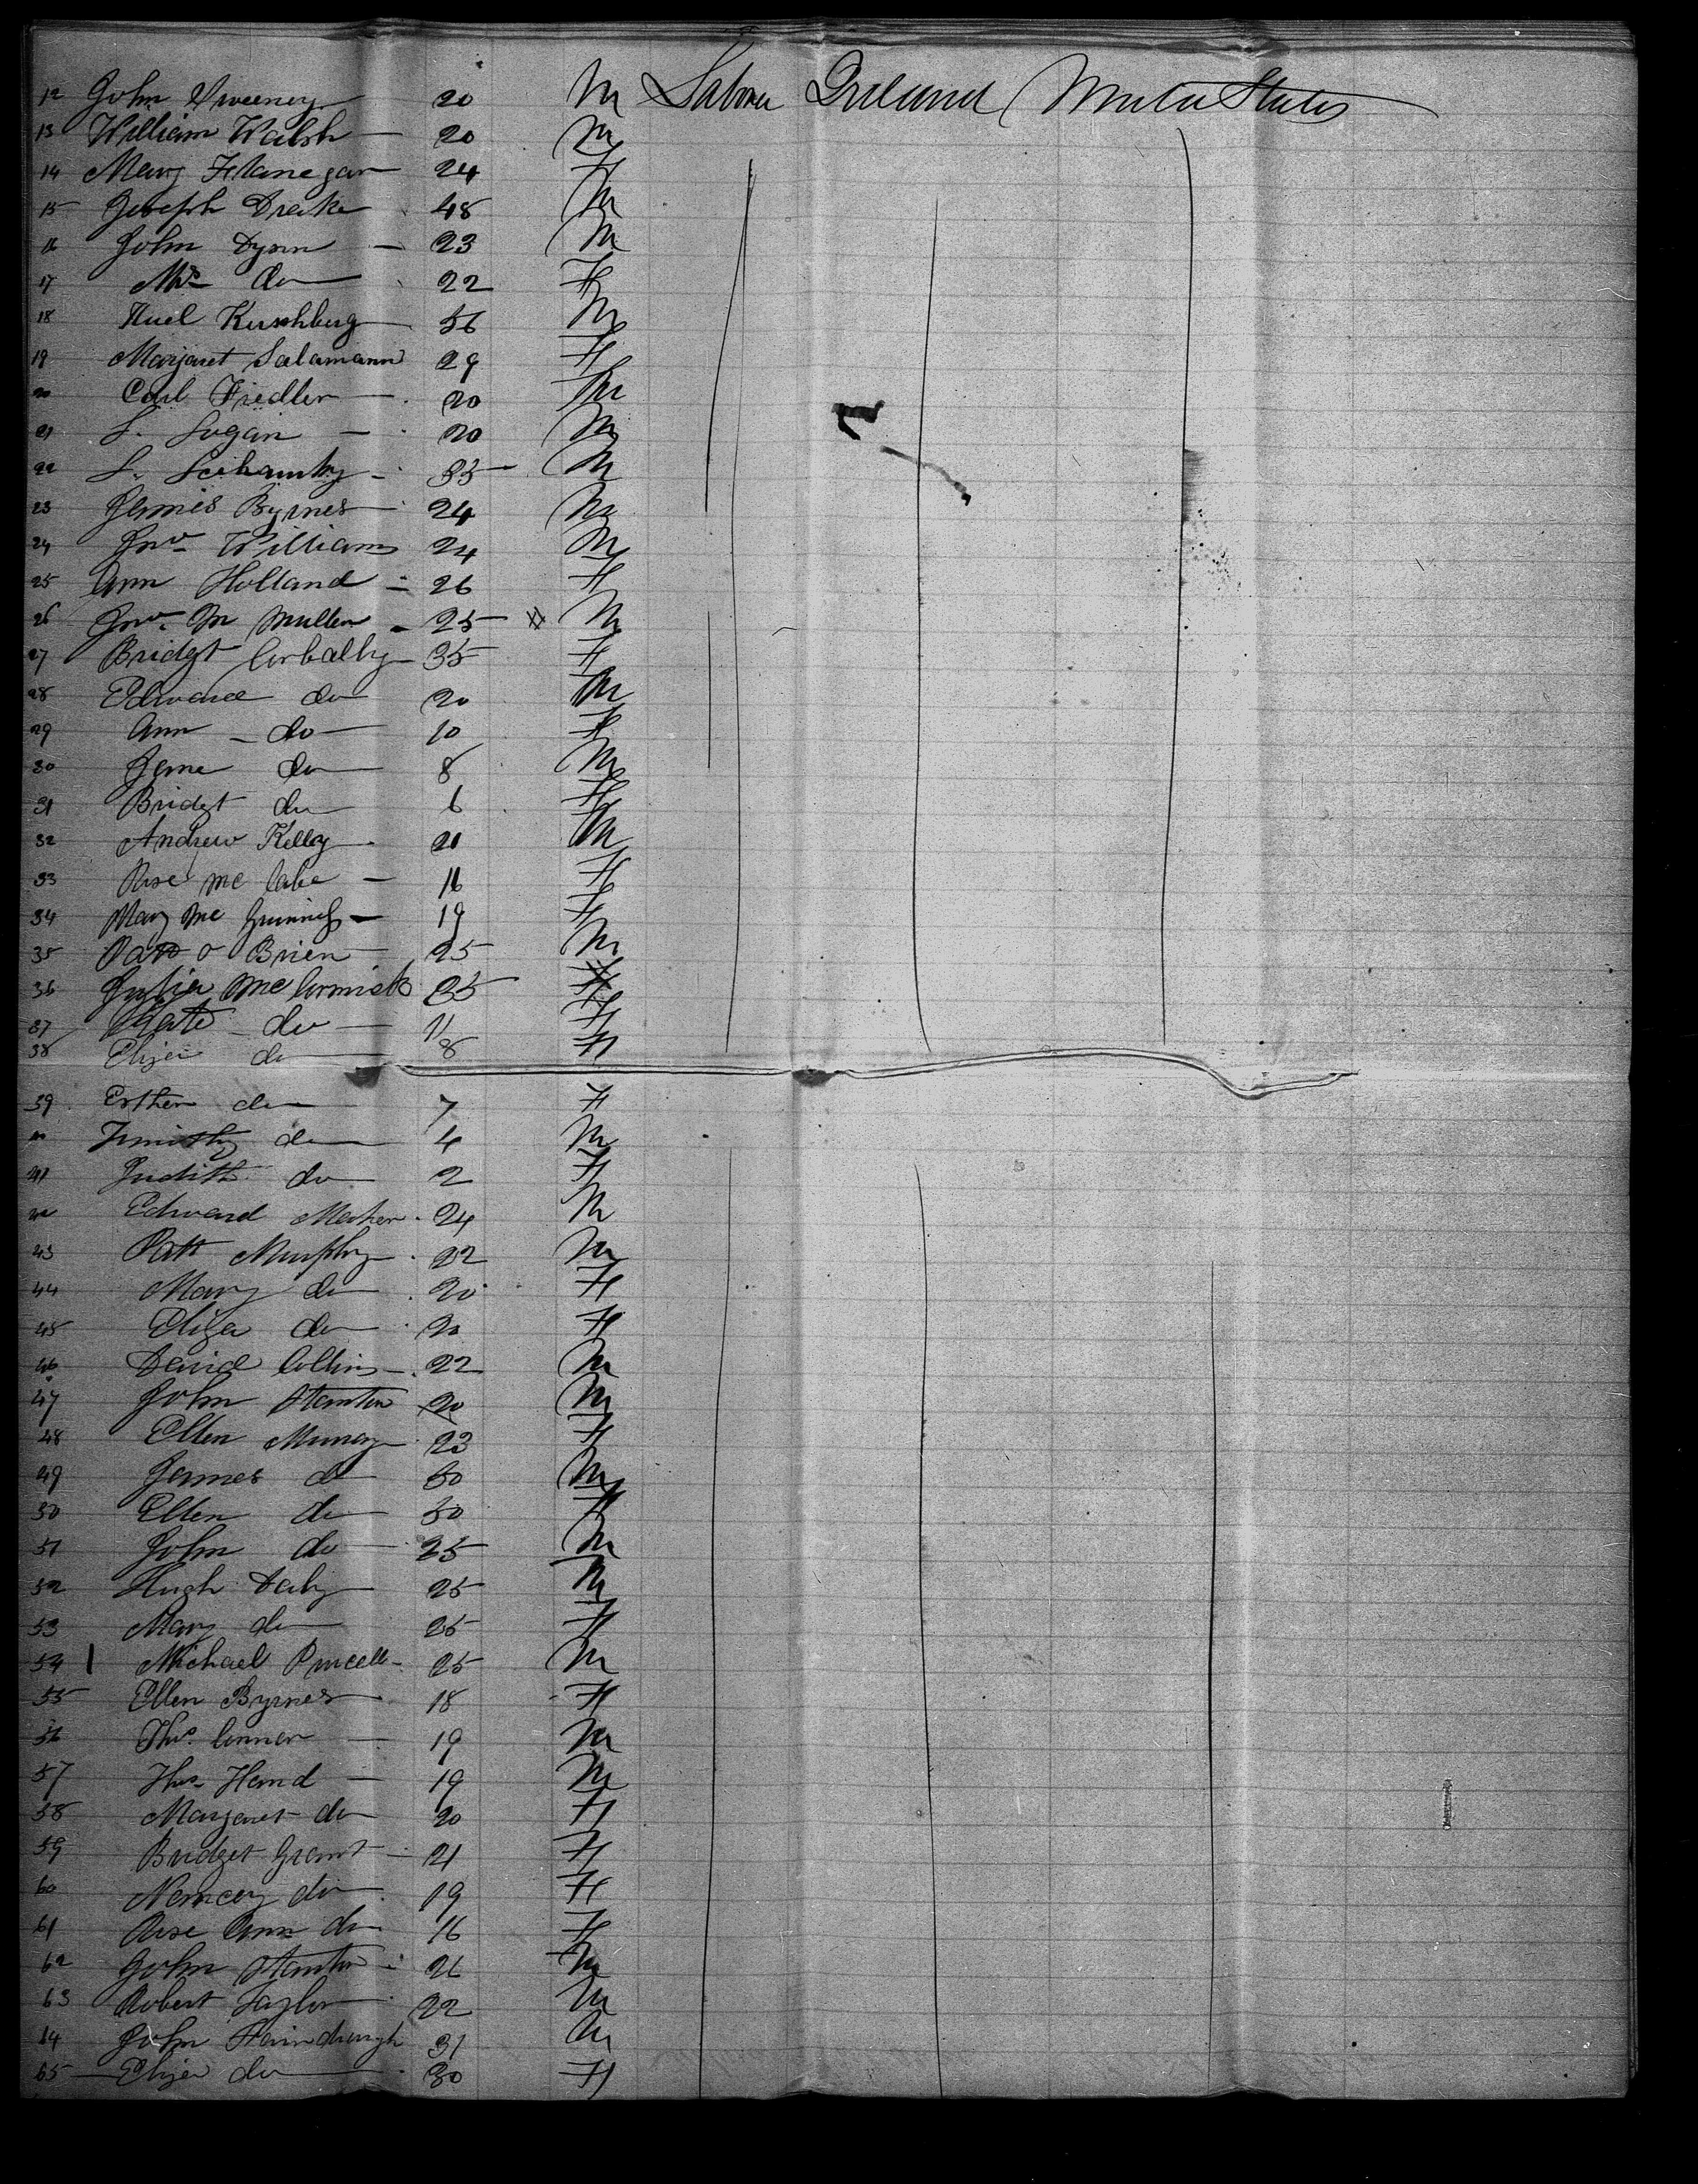 12 John Sweeney 20 M Labour Ireland United States
13 William Walsh 20 M
14 Mary Flanegan 24 F
15 Joseph Drake 48 M
16 John Dyson 23 M
17 Mrs do 22 F
18 Kerschberg 56 M
19 Margaret Salamann 29 F
20 Carl Fiedler 20 M
21 L. Logan 20 M
22 L. 35 M
23 James Byrnes 24 M
24 Jno Williams 24 M
25 Ann Holland 26 F
26 Jno Mc Mullen 25 M
27 Bridgt Corbally 35 F
28 Edward do 20 M
29 Ann do 10 F
30 Jame do 8 M
31 Bridgt do 6 F
32 Andrew Kelley 21 M
33 Rose Mc Cabe 16 F
34 Mary Mc 19 F
35 Patt O Brien 25 M
36 Julia McCormick 35 F
37 Kate do 11 F
38 Eliza do 8 F
39 Esther do 7 F
40 Timothy do 4 M
41 Judith do 2 F
42 Edward Meaher 24 M
43 Patt Murphy 22 M
44 Mary do 20 F
45 Eliza do 20 F
46 David Collins 22 M
47 John Stanton 20 M
48 Ellen Murray 23 F
49 James do 30 M
50 Ellen do 30 F
51 John do 25 M
52 Hugh Daly 25 M
53 Mary do 25 F
54 Michael Purcell 25 M
55 Ellen Byrnes 18 F
56 Thos Connor 19 M
57 Thos Hand 19 M
58 Margaret do 20 F
59 Bridget Grant 21 F
60 Nancy do 19 F
61 Rose Ann do 16 F
62 John Stanton 26 M
63 Robert Taylor 22 M
64 John 31 M
65 Eliza do 30 F